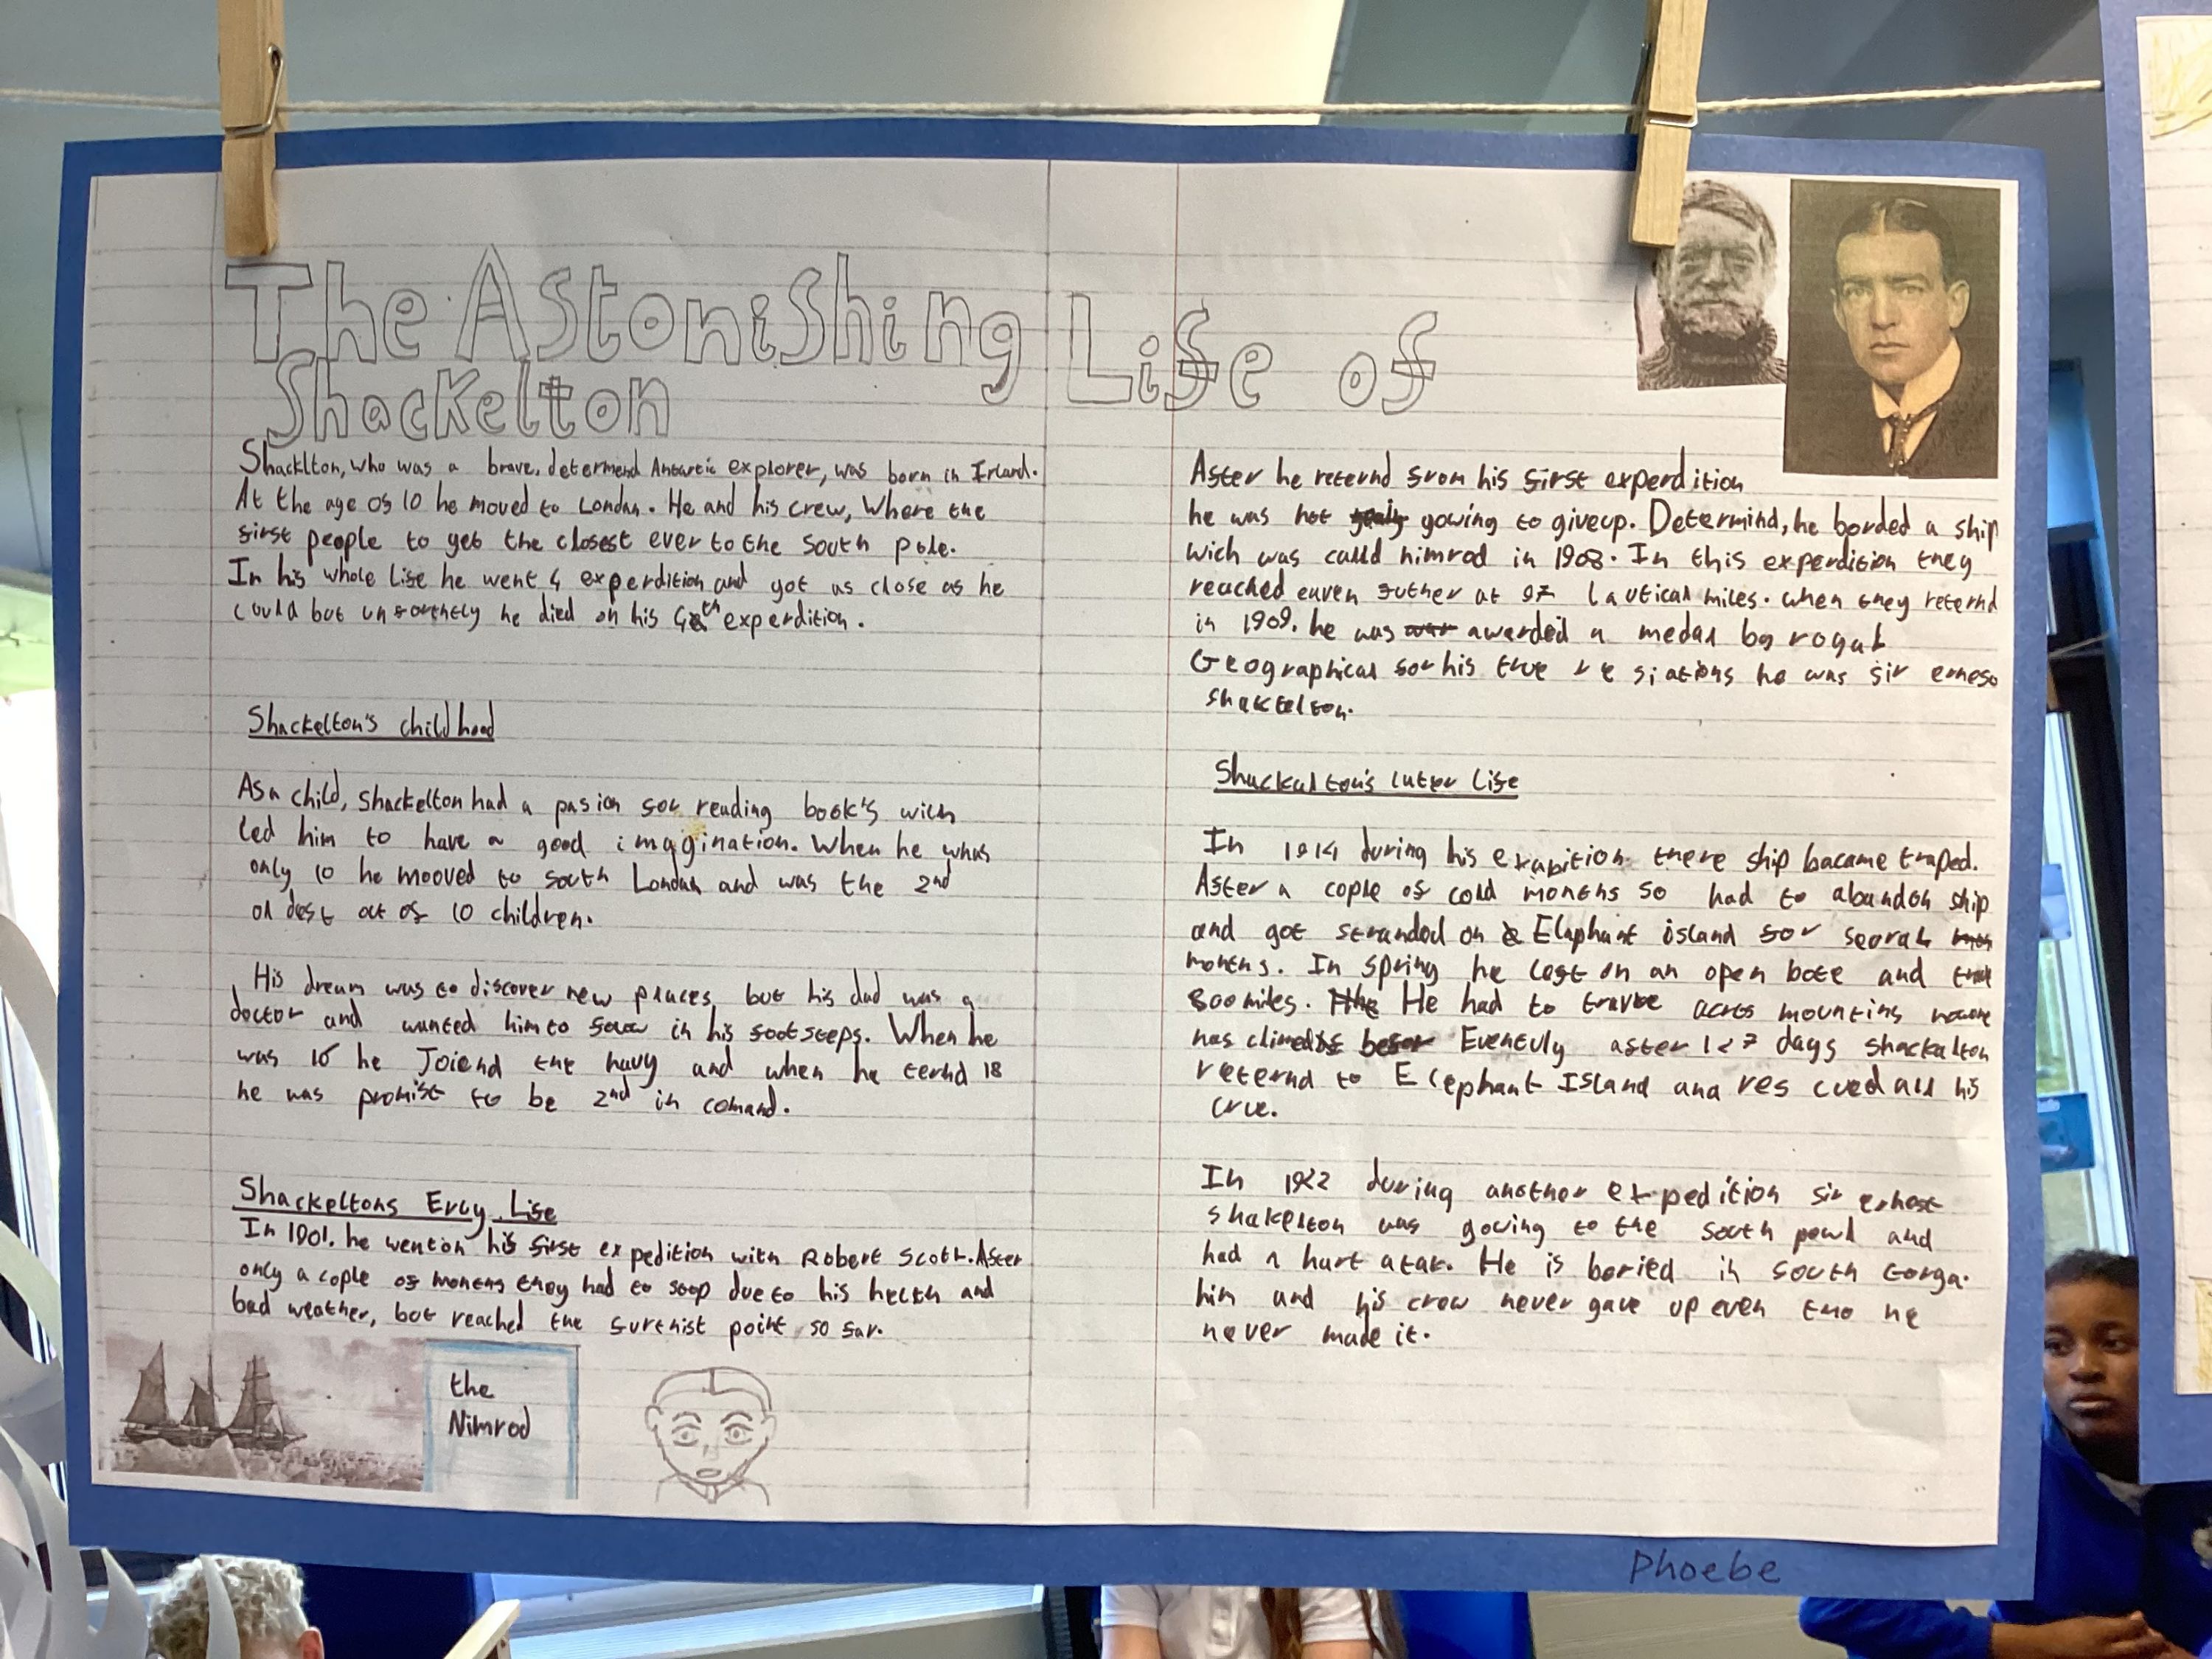 The Astonishing Life of
Shackelton
Shacklton, who was a brave, determend Antartic explorer, was born in Irland.
At the age of 10 he moved to London. He and his crew, Where the
first people to get the closest ever to the South Pole.
In his whole life he went 4 experdition and got as close as he
could but unfortntly he died on his 4th experdition.
Shackelton's childhood
As a child, Shackelton had a pasion for reading book's wich
led him to have a good imagination. When he whas
only 10 he mooved to South London and was the 2nd
oldest out of 10 children.
His dream was to discover new places, but his dad was a
doctor and wanted him to in his footsteps. When he
was 16 he Joiend the navy and when he ternd 18
he was promist to be 2nd in comand.
Shackeltons Erly Life
In 1901, he went on his first expedition with Robert Scott. After
only a cople of months they had to stop due to his helth and
bad weather, but reached the furthist point so far.
the
Nimrod
After he reternd from his first experdition
he was not gowing to giveup. Determind, he borded a ship
wich was calld nimrod in 1908. In this experdition they
reached euven futher at 97 miles. when they reternd
in 1909, he was awarded a medal by royal
Geographical for his he was sir
Shackelton.
Shackalton's later Life
In 1914 during his there ship bacame traped.
After a cople of cold months so had to abandon ship
and got stranded on Elaphant island for
months. In spring he on an open bote and
800 miles. He had to acros mountins
has Eventuly after 127 days shackalton
reternd to Elephant Island and rescued all his
crue.
In 1922 during another expedition sir
shakelton was gowing to the south powl and
had a hart atak. He is boried in south Gorga.
him and his crew never gave up even tho he
never made it.
Phoebe